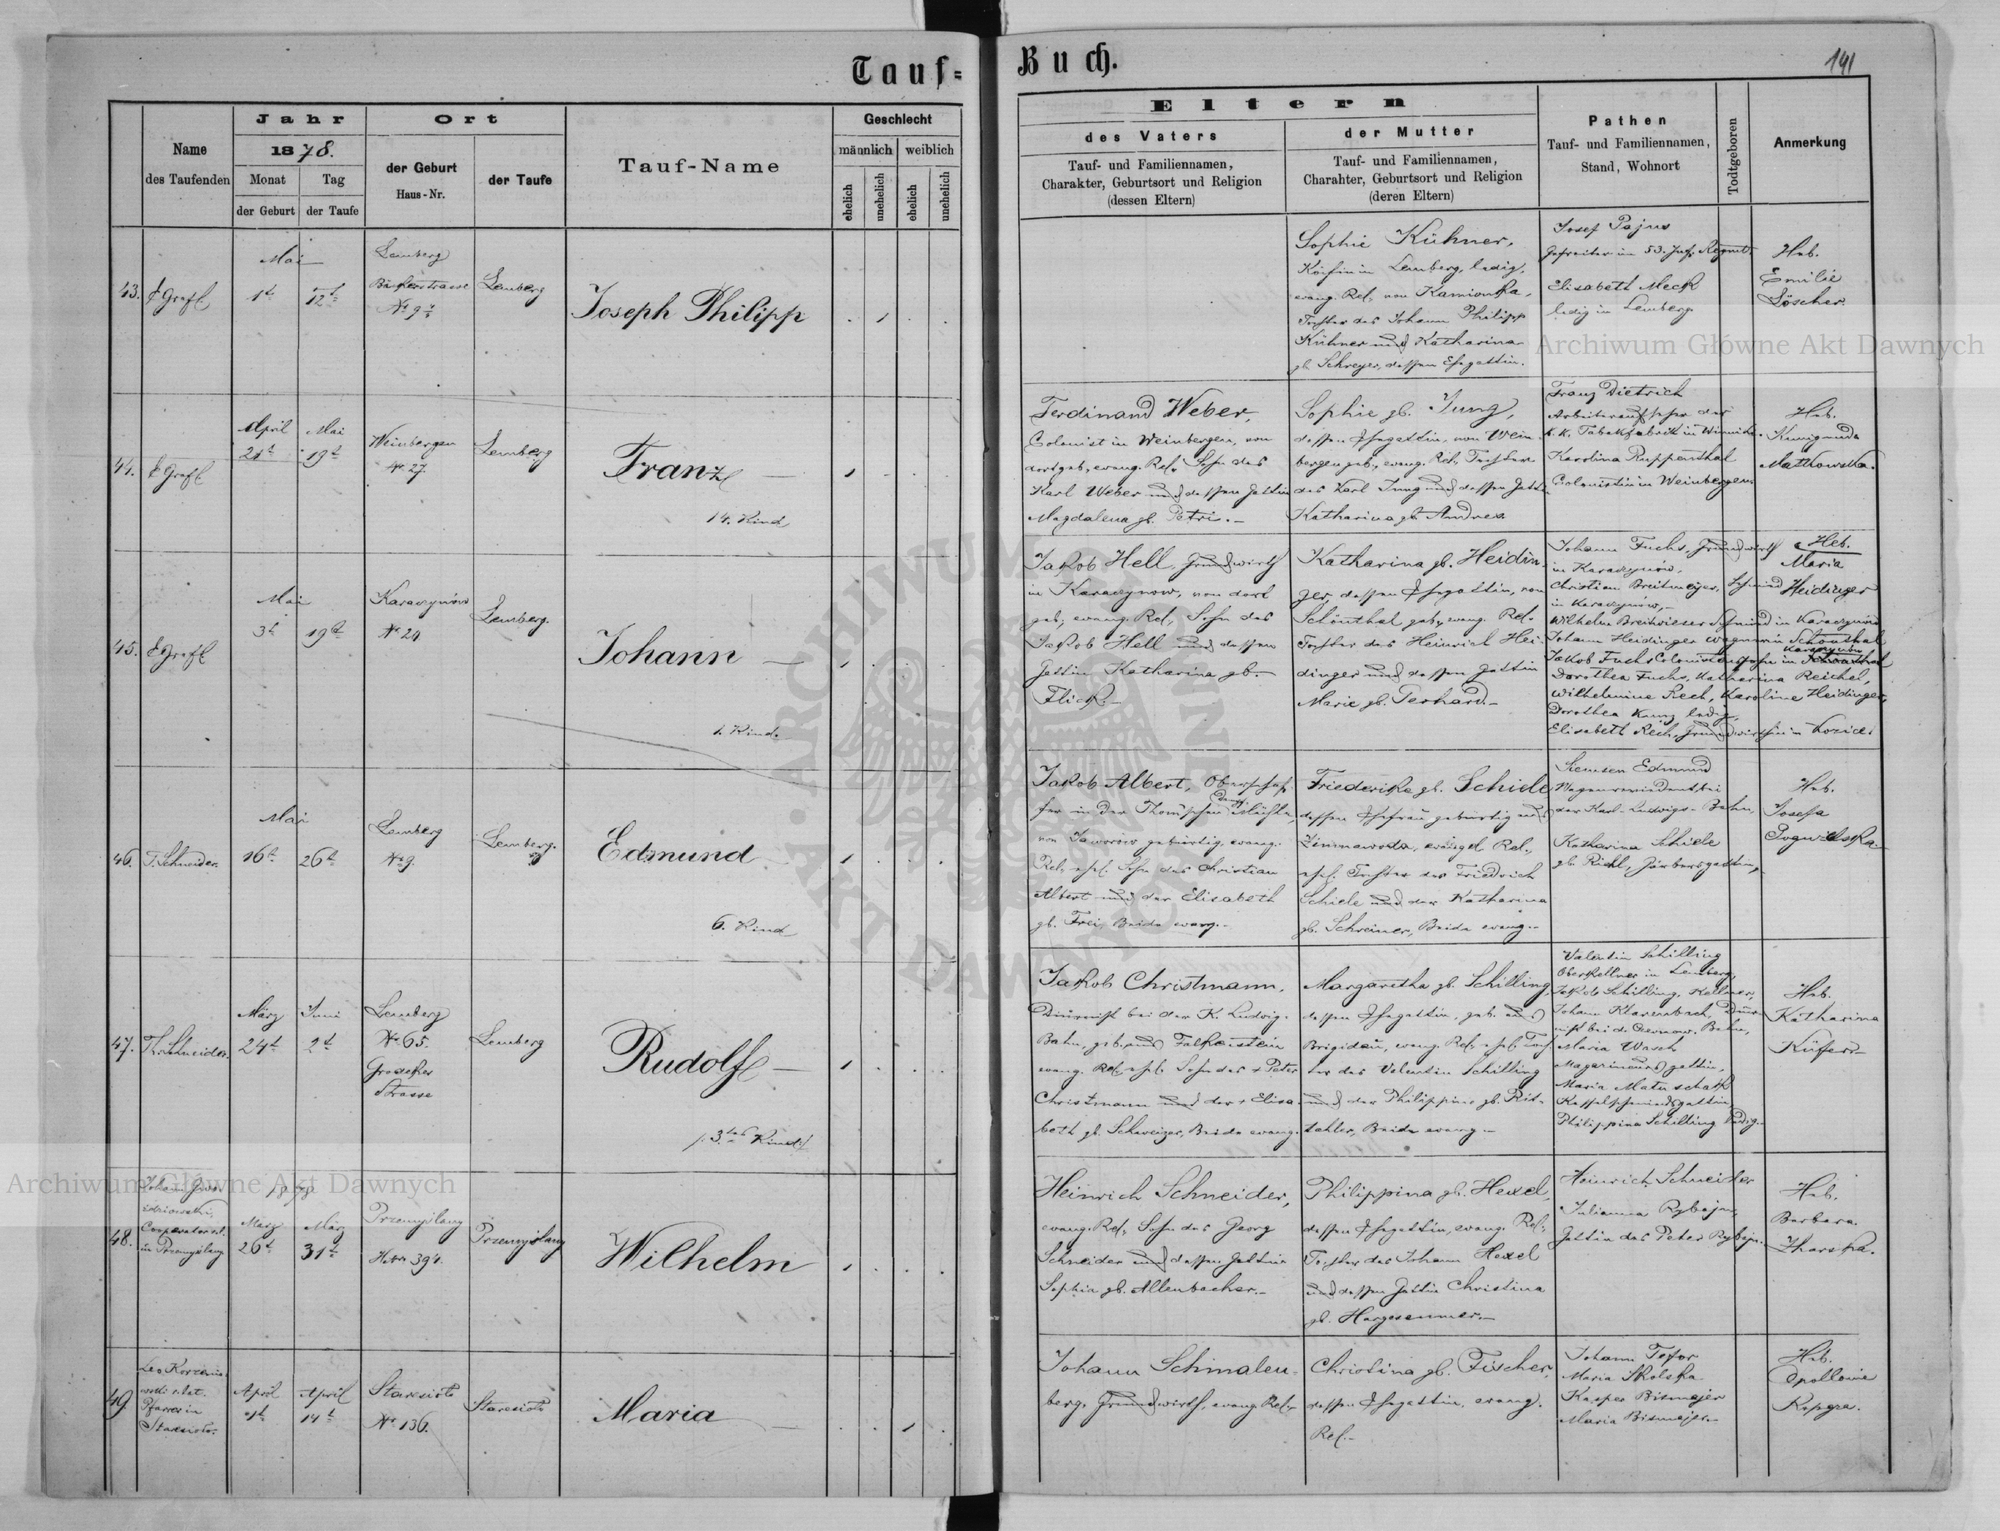 Tauf-
Buch.
141
Name
des Taufenden
Jahr
1878.
Monat
Tag
der Geburt
der Taufe
Ort
der Geburt
Haus-Nr.
der Taufe
Tauf-Name
Geschlecht
männlich
weiblich
ehelich
unehelich
ehelich
unehelich
Eltern
des Vaters
Tauf- und Familiennamen,
Charakter, Geburtsort und Religion
(dessen Eltern)
der Mutter
Tauf- und Familiennamen,
Charahter, Geburtsort und Religion
(deren Eltern)
Pathen
Tauf- und Familiennamen,
Stand, Wohnort
Todtgeboren
Anmerkung
43.
Mai
1t
12t
Lemberg
No 9
Lemberg
Joseph Philipp
Sophie Kühner,
Köchin in Lemberg, ledig,
evang. Rel. von Kamionka,
Tochter des Johann Philipp
Kühner und Katharina
gb. Schreyer, dessen Ehegattin.
Josef Pajus
Gefreiter im 53. Inf. Regmt.
Elisabeth Meck
ledig in Lemberg
Heb.
Emilie
Löscher.
44.
April
21t
Mai
19t
Weinbergen
No 27.
Lemberg
Franz
14. Kind
Ferdinand Weber,
Colonist in Weinbergen, von
dort geb., evang. Rel. Sohn des
Karl Weber und dessen Gattin
Magdalena gb. Petri.
Sophie gb. Jung,
dessen Ehegattin, von Wein-
bergen geb., evang. Rel. Tochter
des Karl Jung und dessen Gattin
Katharina gb. Andres
Franz Dietrich
Arbeiteraufseher der
k. k. Tabakfabrik in Winniki.
Karolina Ruppenthal
Colonistin in Weinbergen
Heb.
Kunigunda
Matkowska.
45.
Mai
3t
19t
Karaczynów
No 24
Lemberg.
Johann
1. Kind.
Jakob Hell, Grundwirth
in Karaczynow, von dort
geb., evang. Rel., Sohn des
Jakob Hell und dessen
Gattin Katharina gb.
Flick.
Katharina gb. Heidin-
ger, dessen Ehegattin, von
Schönthal geb., evang. Rel.
Tochter des Heinrich Hei-
dinger und dessen Gattin
Marie gb. Gerhard.
Johann Fuchs, Grundwirth
in Karaczynów,
Christian Breitmeyer, Schmied
in Karaczynów,
Wilhelm Breitwieser Schmied in Karaczynów
Johann Heidinger Wagner in Schönthal
Karaczynów
Jakob Fuchs Colonistenssohn in Schönthal
Dorothea Fuchs, Katharina Reichel,
Wilhelmine Rech, Karoline Heidinger,
Dorothea Kunz ledig,
Elisabeth Rech, Grundwirthin in Kozice.
Heb.
Maria
Heidinger
46.
T. Schneider.
Mai
16t
26t
Lemberg
No 9.
Lemberg.
Edmund
6. Kind
Jakob Albert,
Dampf
von Jaworow gebürtig, evang.
Rel., ehel. Sohn des Christian
Albert und der Elisabeth
gb. Frei, Beide evang.
Friederike gb. Schiele
dessen Ehefrau gebürtig aus
Zimnawoda, evangel. Rel.,
ehel. Tochter des Friedrich
Schiele und der Katharina
gb. Schreiner, Beide evang.
Siemsen Edmund
Wagenrevident bei
der Karl-Ludwigs-Bahn,
Katharina Schiele
gb. Richl,
Heb.
Josefa
47.
Th. Schneider.
März
24t
Juni
2t
Lemberg
No 65.
Grodeker
Strasse
Lemberg
Rudolf
/. 3tes Kind /
Jakob Christmann,
Diurnist bei der K. Ludwig.
Bahn, geb. aus Falkenstein
evang. Rel. ehel. Sohn des + Peter
Christmann und der + Elisa-
beth gb. Schweizer, Beide evang.
Margaretha gb. Schilling
dessen Ehegattin, geb. aus
Brigidau, evang. Rel. ehel. Toch-
ter des Valentin Schilling
und der Philippine gb. Rit-
thaler, Beide evang.
Valentin Schilling
Oberkellner in Lemberg,
Jakob Schilling, Kellner,
Johann Klarenbach, Diur-
nist bei d. Czernow. Bahn,
Maria Wasch
Magazineursgattin,
Maria Matuschak
Kesselschmiedsgattin
Philippina Schilling ledig.
Heb.
Katharina
Küfer
48.
Cooperator r. l.
in Przemyslany
1878
März
26t
März
31t
Przemyslany
Hs No 394.
Przemyslany
Wilhelm
Heinrich Schneider,
evang. Rel. Sohn des Georg
Schneider und dessen Gattin
Sophia gb. Allenbacher.
Philippina gb. Hexel,
dessen Ehegattin, evang. Rel.
Tochter des Johann Hexel
und dessen Gattin Christina
gb. Hargesenmer.
Heinrich Schneider
Julianna Rybajn,
Gattin des Peter Rybajn.
Heb.
Barbara
Zharska.
49
Pfarrer in
Staresioło.
April
1t
April
14t
Staresioło
No 136.
Staresioło
Maria
Johann Schmalen-
berg, Grundwirth, evang. Rel.
Christina gb. Fischer,
dessen Ehegattin, evang.
Rel.
Johann Tofor
Maria Skolska
Kasper Bismejer
Maria Bismejer.
Heb.
Apollonia
Archiwum Główne Akt Dawnych
Archiwum Główne Akt Dawnych
ARCHIWUM GŁÓWNE AKT DAWNYCH